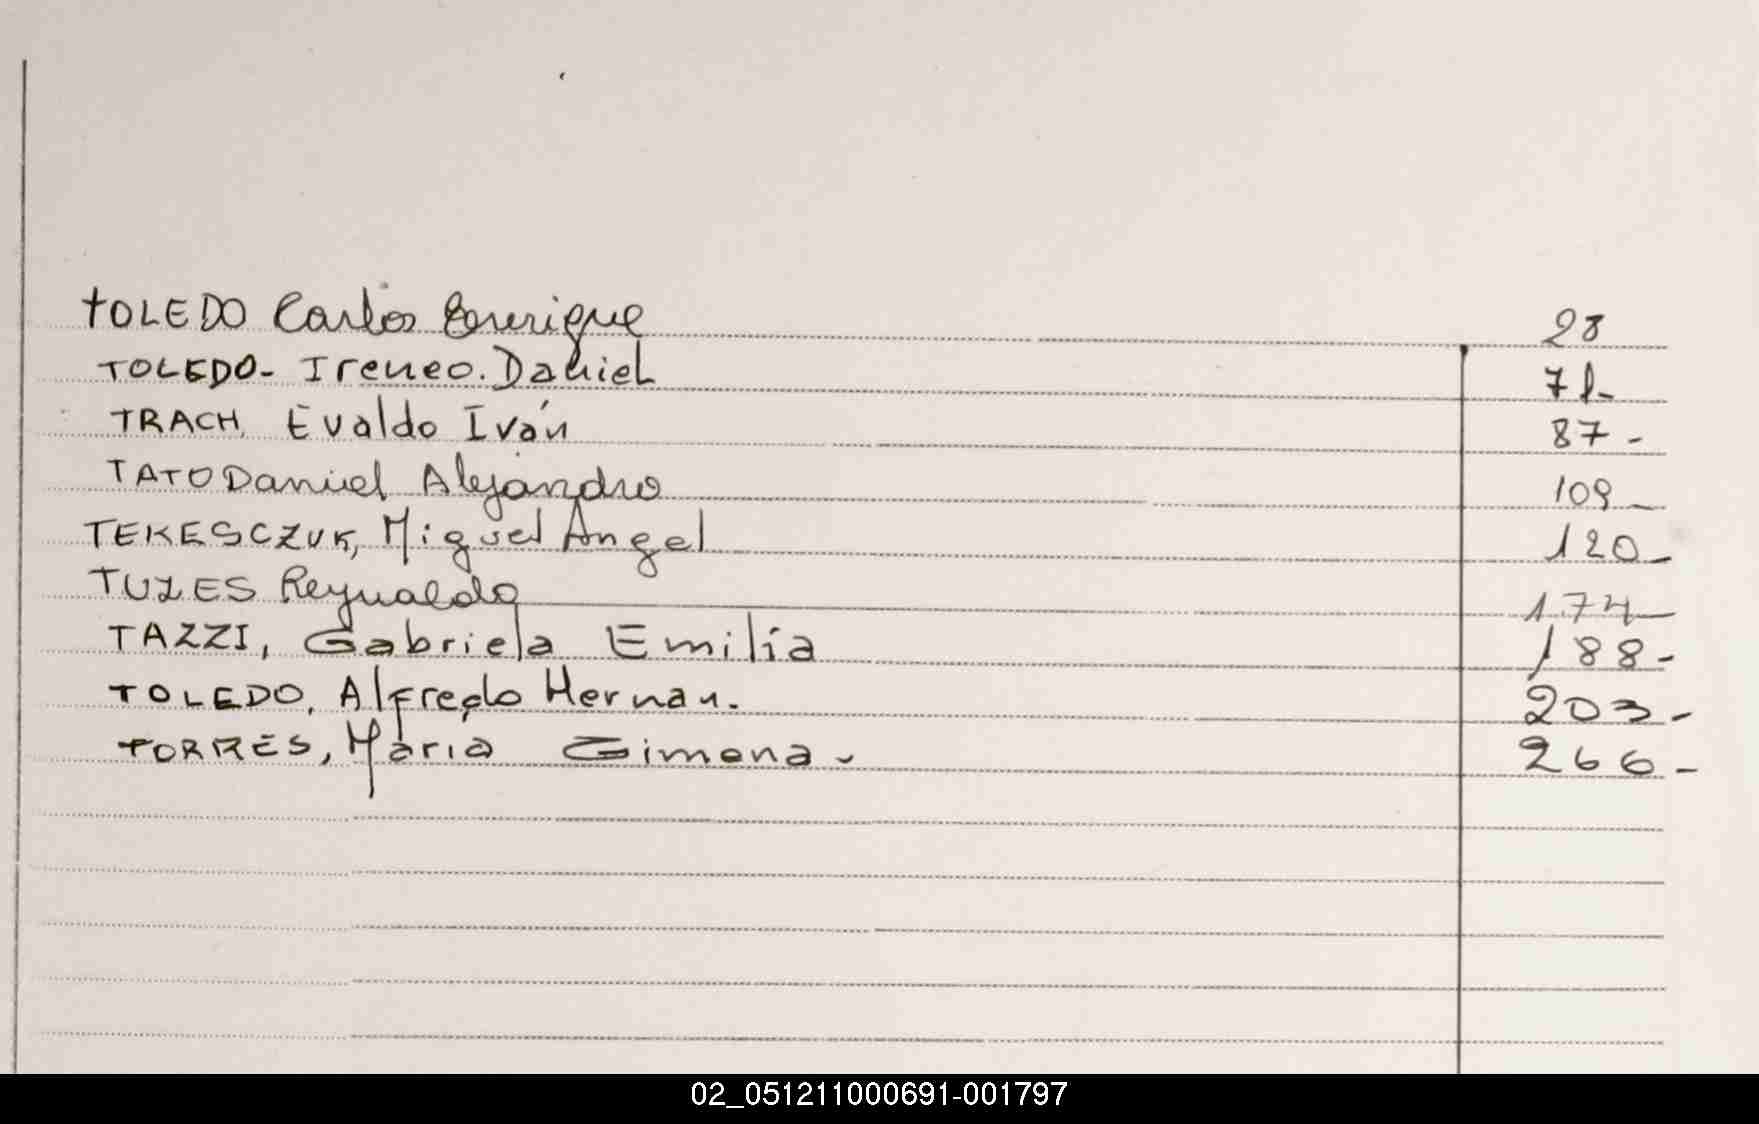 TOLEDO Carlos Enrique 28
TOLEDO- Ireneo. Daniel 71-
TRACH, Evaldo Iván 87-
TATO Daniel Alejandro 109-
TEKESCZUK, Miguel Angel 120-
TUZES Reynaldo 174-
TAZZI, Gabriela Emilia 188-
TOLEDO, Alfredo Hernan. 203-
TORRES, Maria Gimena- 266-
02_051211000691-001797